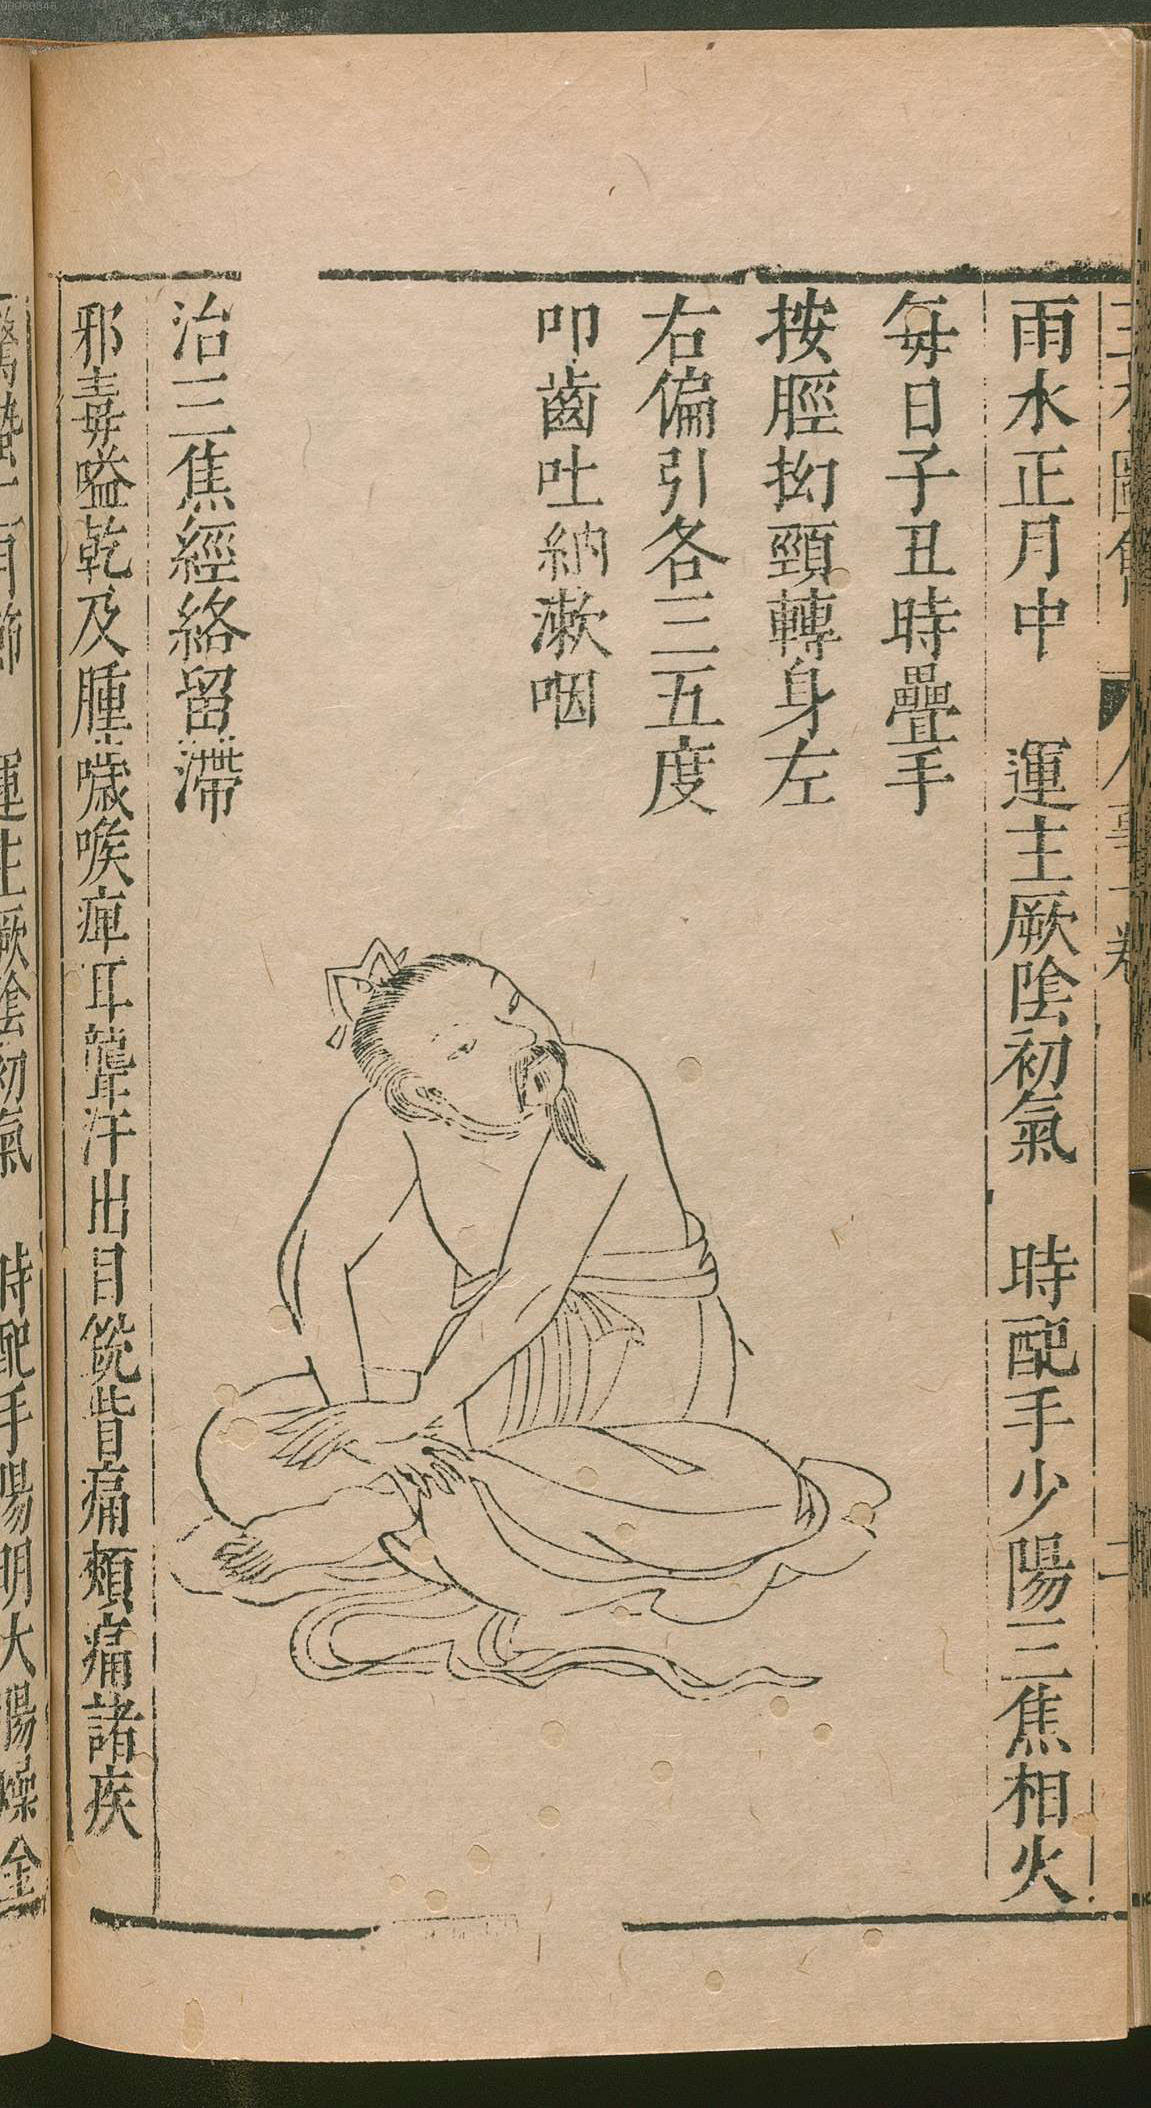 雨水正月中　運主厥陰初氣　時配手少陽三焦相火
每日子丑時疊手
按脛拗頸轉身左
右偏引各三五度
叩齒吐納漱咽
治三焦經絡留滯
邪毒嗌乾及腫噦喉痺耳聾汗出目銳眥痛頰痛諸疾
二月節　運主厥陰初氣　時配手陽明大腸燥金